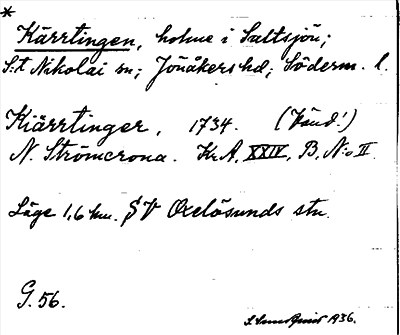 *
Kärrtingen, holme i Saltsjön;
S:t Nikolai sn; Jönåkers hd; Söderm. l.
Kiärrtinger, 1734. (Vänd!)
N. Strömcrona. Kr.A, XXIV, B, N:o II
Läge 1,6 km. SV Oxelösunds stn.
G. 56.
1936.